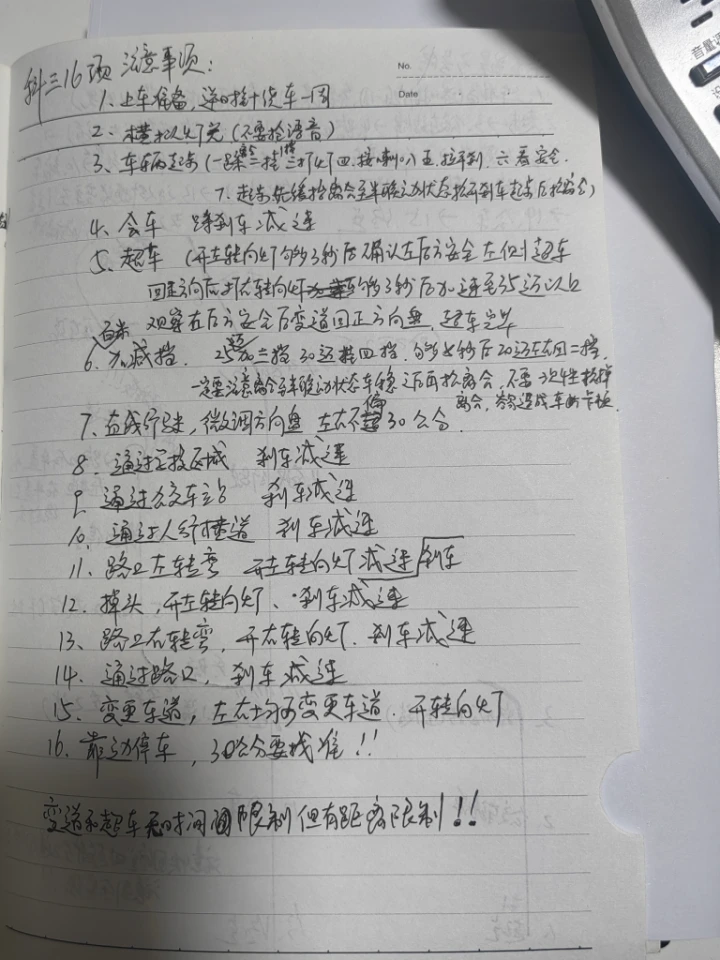 科三16项 注意事项:
No.
Date
音量调
1、上车准备,逆时针绕车一圈
2、模拟灯光(不要抢语音)
3、车辆起步(一踩 二挂 三打灯 四、按喇叭 五、拉手刹 六看安全.
7、起步先缓抬离合至半联动状态松手刹车起步后抬离合)
4、会车 踩刹车减速
5、超车 (开左转向灯够3秒后确认左后方安全 左侧超车
回正方向后打右转向灯够3秒后加速至35迈以上
百米 观察右后方安全后变道回正方向盘,超车完毕
6、加减挡. 25加三挡 30迈挂四挡. 够 秒后20迈左右回二挡.
一定要注意离合至半联动状态车稳之后再松离合,不要一次性松掉
离合,容易造成车的卡顿.
7、直线行驶,微调方向盘 左右不偏30公分.
8、通过学校区域 刹车减速
9、通过公交车站 刹车减速
10、通过人行横道 刹车减速
11、路口左转弯 开左转向灯 减速 刹车
12、掉头,开左转向灯、刹车减速
13、路口右转弯,开右转向灯、刹车减速
14、通过路口,刹车减速
15、变更车道,左右均可变更车道. 开转向灯
16、靠边停车,30公分要找准!!
变道和超车无时间限制但有距离限制!!